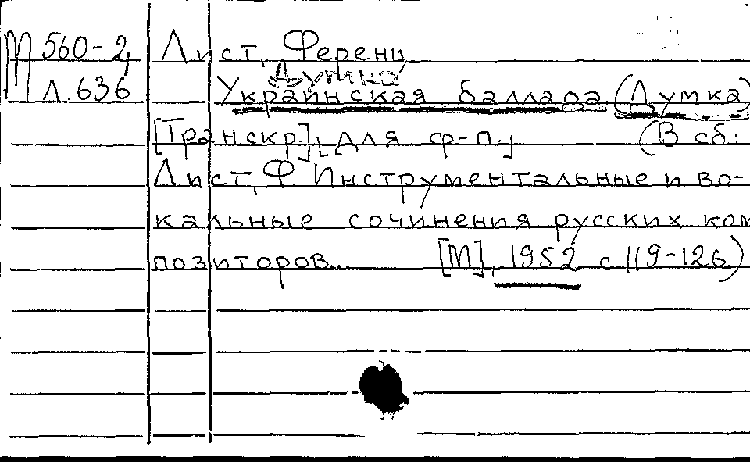 М 560-2 Лист, Ференц
Думка
Л.636 Украинская баллада (Думка)
[Транскр], для ф-п. (В сб.:
Лист, Ф. Инструментальные и во-
кальные сочинения русских ком
позиторов. [М], 1952 с 119-126)